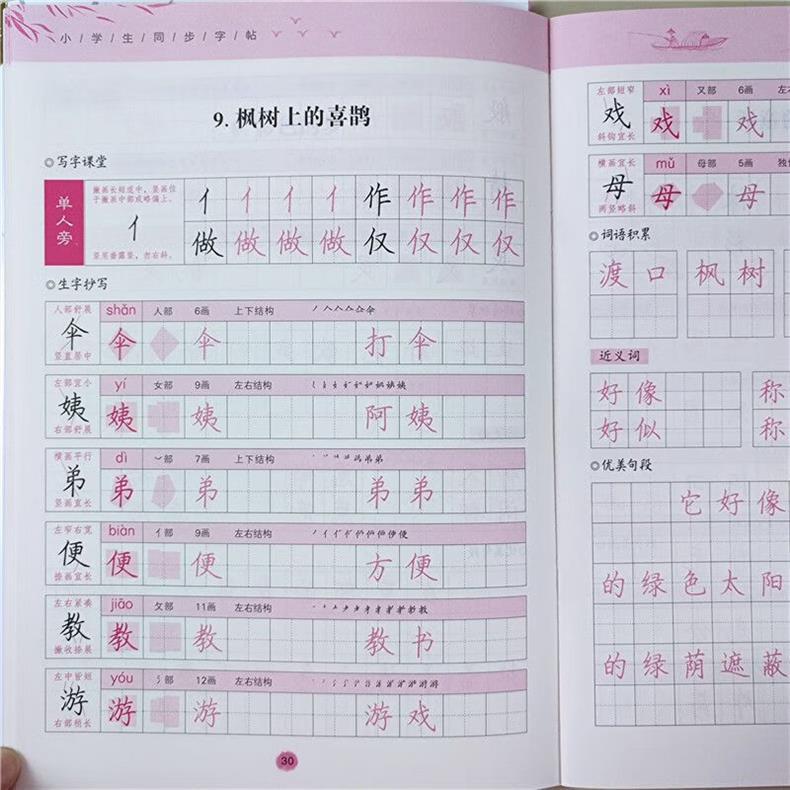 小/学/生/同/步/字/帖
9. 枫树上的喜鹊
◎写字课堂
单人旁
撇画长短适中，竖画位
于撇画中部或略偏上。
亻
竖笔垂露竖，勿右斜。
亻 亻 亻 亻 作 作 作 作
做 做 做 做 仅 仅 仅 仅
◎生字抄写
人部舒展 伞 竖直居中
shǎn 人部 6画 上下结构
伞 伞 打 伞
左部宜小 姨 右部舒展
yí 女部 9画 左右结构
姨 姨 阿 姨
横画平行 弟 竖画宜长
dì 丷部 7画 上下结构
弟 弟 弟 弟
左窄右宽 便 捺画宜长
biàn 亻部 9画 左右结构
便 便 方 便
左右紧凑 教 撇收捺展
jiāo 攵部 11画 左右结构
教 教 教 书
左中皆短 游 右部稍长
yóu 氵部 12画 左右结构
游 游 游 戏
30
左部短窄 戏 斜钩宜长
xì 又部 6画 左右
戏 戏
横画宜长 母 两竖略斜
mǔ 母部 5画 独
母 母
◎词语积累
渡 口 枫 树
近义词
好 像 称
好 似 称
◎优美句段
它 好 像
的 绿 色 太 阳
的 绿 荫 遮 蔽